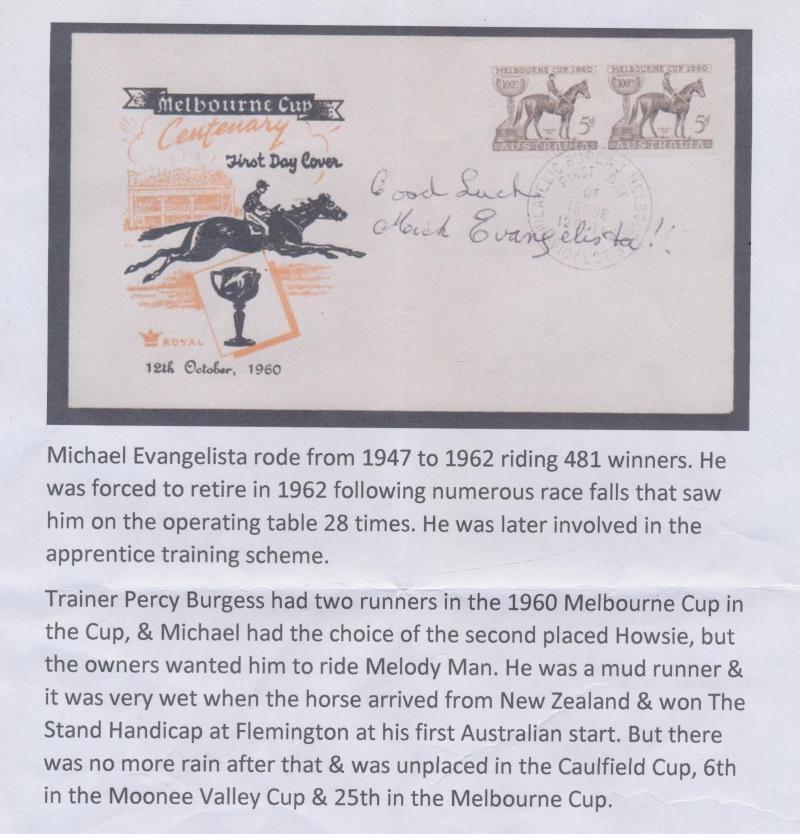 Melbourne Cup
Centenary
First Day Cover
ROYAL
12th October, 1960
MELBOURNE CUP 1960 MELBOURNE CUP 1960
100TH 100TH
5D 5D
AUSTRALIA AUSTRALIA
FIRST DAY
OF
Good Luck
Mick Evangelista!!
Michael Evangelista rode from 1947 to 1962 riding 481 winners. He
was forced to retire in 1962 following numerous race falls that saw
him on the operating table 28 times. He was later involved in the
apprentice training scheme.
Trainer Percy Burgess had two runners in the 1960 Melbourne Cup in
the Cup, & Michael had the choice of the second placed Howsie, but
the owners wanted him to ride Melody Man. He was a mud runner &
it was very wet when the horse arrived from New Zealand & won The
Stand Handicap at Flemington at his first Australian start. But there
was no more rain after that & was unplaced in the Caulfield Cup, 6th
in the Moonee Valley Cup & 25th in the Melbourne Cup.